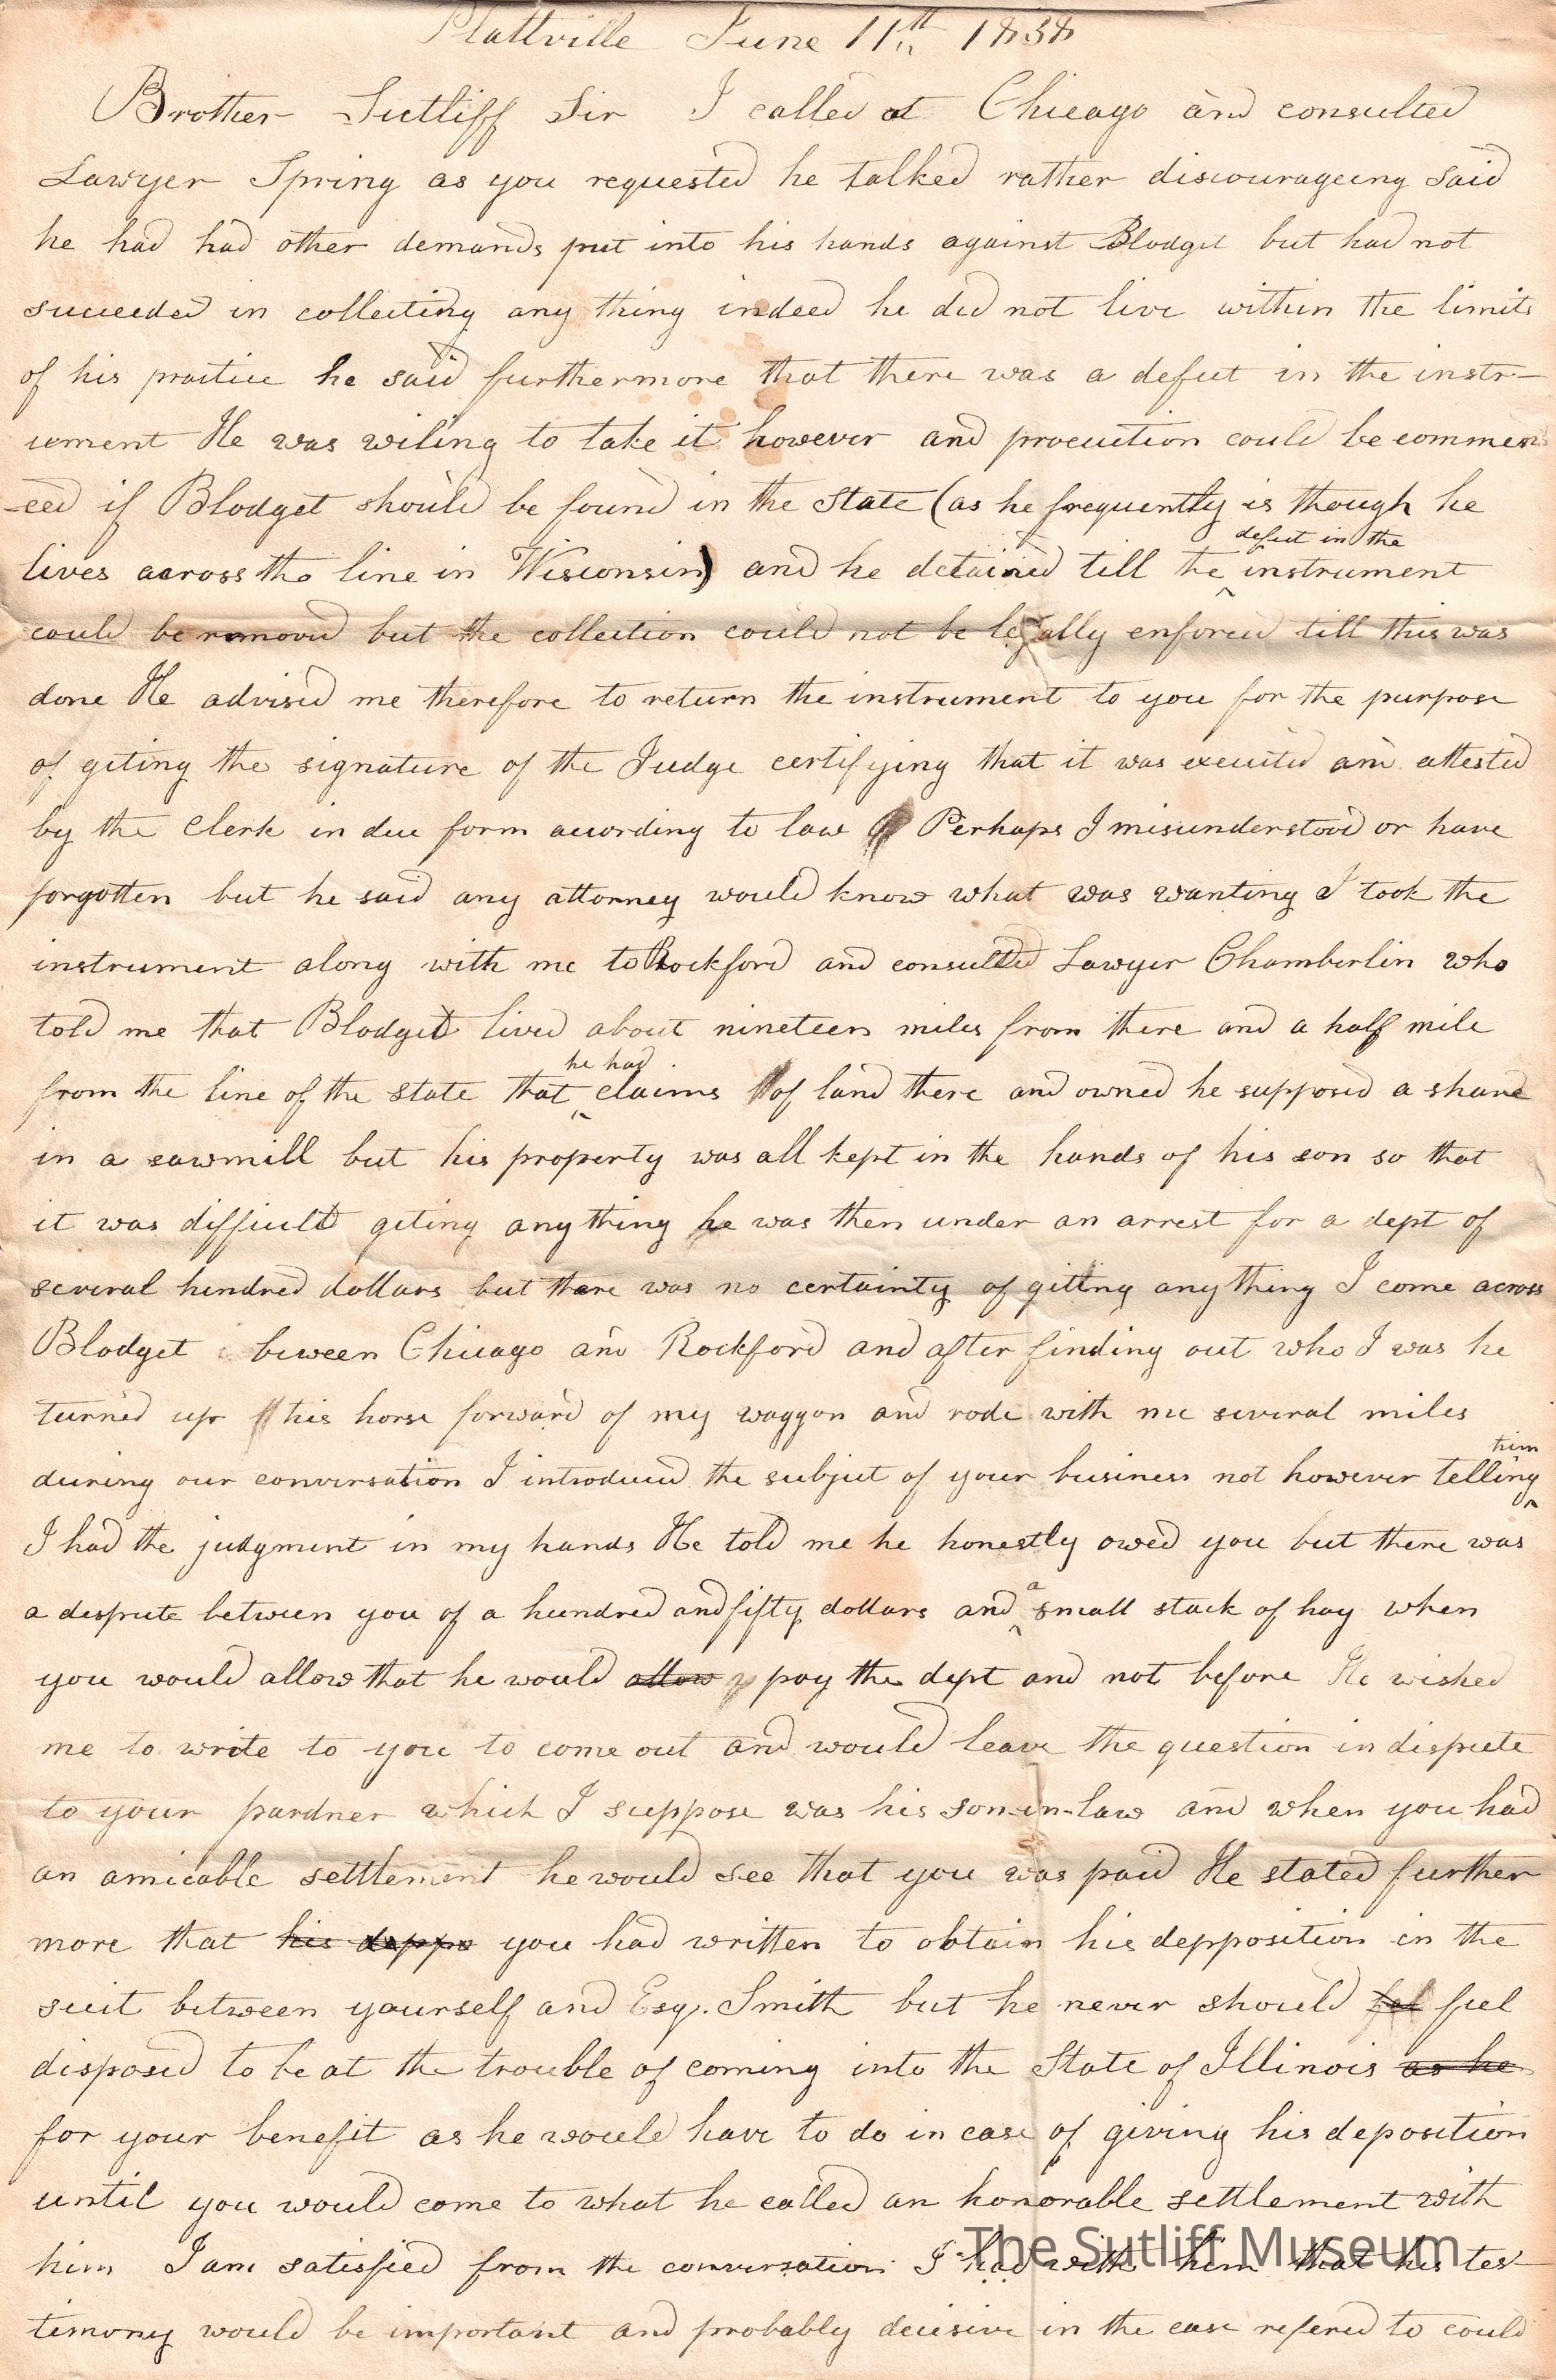 Plattville June 11th 1838
Brother Sutliff Sir I called at Chicago and consulted
Lawyer Spring as you requested he talked rather discourageing said
he had had other demands put into his hands against Blodget but had not
succeeded in collecting any thing indeed he did not live within the limits
of his practice he said furthermore that there was a defect in the instr-
ument He was wiling to take it however and procution could be commen
-ced if Blodget should be found in the State (as he frequently is though he
lives across the line in Wisconsin) and he detained till the defect in the instrument
could be removed but the collection could not be legally enforced till this was
done He advised me therefore to return the instrument to you for the purpose
of giting the signature of the Judge certifying that it was executed and attested
by the Clerk in due form according to law Perhaps I misunderstood or have
forgotten but he said any attorney would know what was wanting I took the
instrument along with me to Rockford and consulted Lawyer Chamberlin who
told me that Blodget lived about nineteen miles from there and a half mile
from the line of the state that he had claims of land there and owned he supposed a share
in a sawmill but his property was all kept in the hands of his son so that
it was difficult giting any thing he was then under an arrest for a dept of
several hundred dollars but there was no certainty of gitting any thing I come across
Blodget beween Chicago and Rockford and after finding out who I was he
turned up his horse forward of my waggon and rode with me several miles
during our conversation I introduced the subject of your business not however telling him
I had the judgment in my hands He told me he honestly owed you but there was
a despute between you of a hundred and fifty dollars and a small stack of hay when
you would allow that he would allow pay the dept and not before He wished
me to write to you to come out and would leave the question in dispute
to your pardner which I suppose was his son-in-law and when you had
an amicable settlement he would see that you was paid He stated further
more that his deppo you had written to obtain his depposition in the
suit between yourself and Esq. Smith but he never should fel feel
disposed to be at the trouble of coming into the State of Illinois as he
for your benefit as he would have to do in case of giving his deposition
until you would come to what he called an honorable settlement with
him I am satisfied from the conversation I had with him that his tes-
timony would be important and probably decisive in the case refered to could
The Sutliff Museum